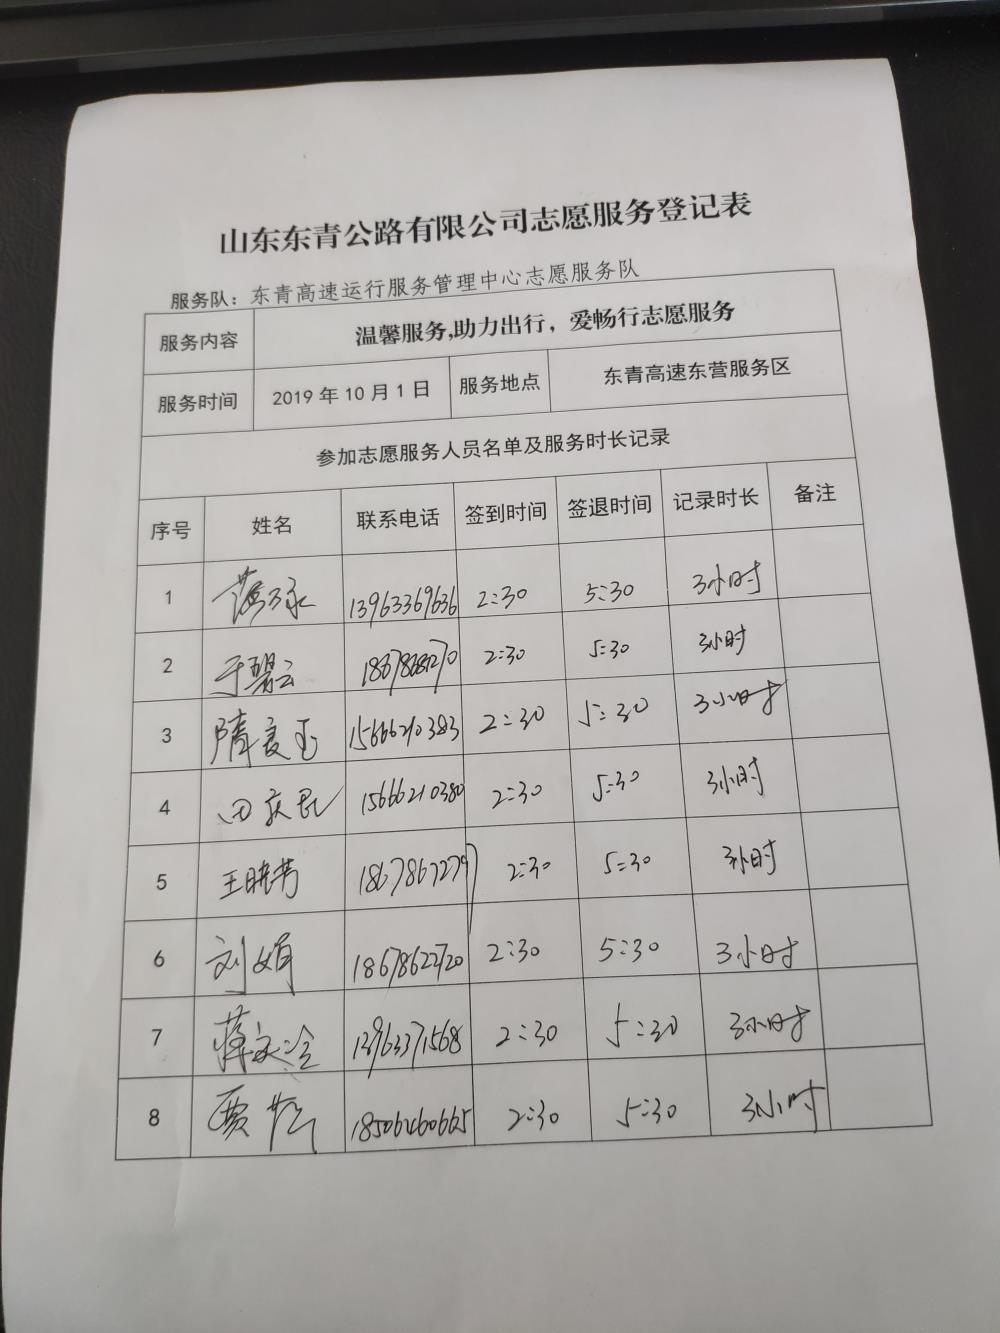 山东东青公路有限公司志愿服务登记表
服务队：东青高速运行服务管理中心志愿服务队
服务内容 温馨服务,助力出行，爱畅行志愿服务
服务时间 2019年10月1日 服务地点 东青高速东营服务区
参加志愿服务人员名单及服务时长记录
序号 姓名 联系电话 签到时间 签退时间 记录时长 备注
1 13963369636 2:30 5:30 3小时
2 于碧云 2:30 5:30 3小时
3 15666210383 2:30 5:30 3小时
4 15666210380 2:30 5:30 3小时
5 王晓芳 2:30 5:30 3小时
6 刘娟 18678622720 2:30 5:30 3小时
7 13963371568 2:30 5:30 3小时
8 2:30 5:30 3小时